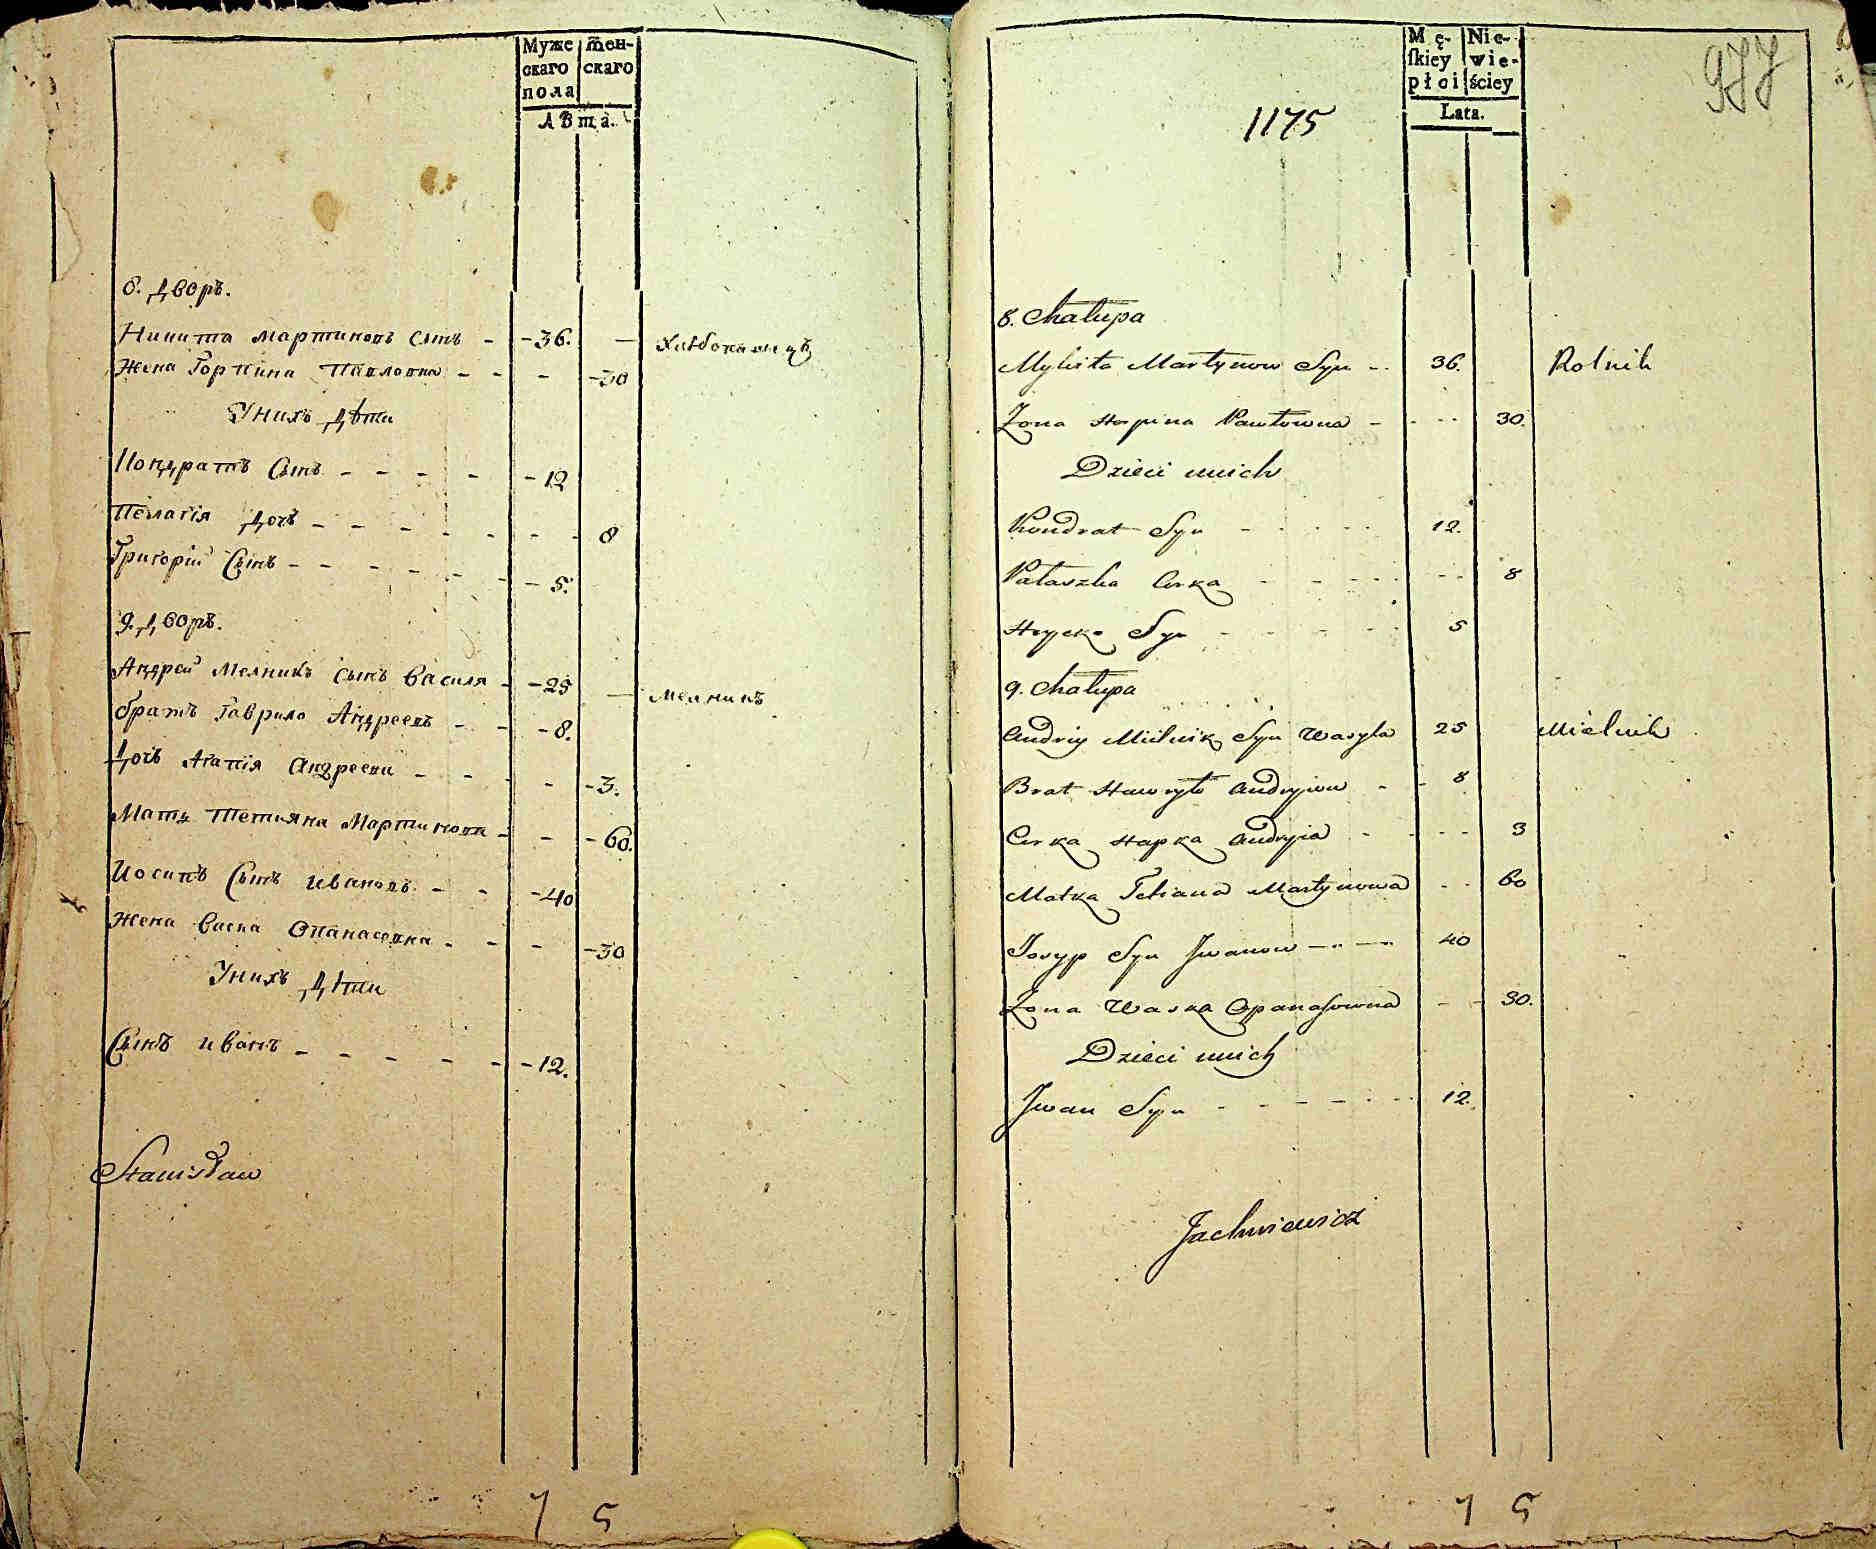 Муже
скаго
пола
Жен-
скаго
Лѣта.
8. Дворъ.
Никита Мартиновъ Сынъ - - 36. — Хлѣбопашецъ
Жена Горпина Павловна - - - - 30
У нихъ Дѣти
Кондратъ Сынъ - - - - - 12
Пелагія Дочь - - - - - - - 8
Григорій Сынъ - - - - - - - 5.
9. Дворъ.
Андрей Мелникъ Сынъ Василя - - 25 — Мелникъ
братъ Гаврило Андреевъ - - - 8.
Дочь Агапія Андреева - - - - - 3.
Мать Тетияна Мартинова - - - 60.
Иосипъ Сынъ Ивановъ - - - 40
Жена Васка Опанасовна - - - - 30
У нихъ Дѣти
Сынъ иванъ - - - - - - 12.
Stanisław
7 5
Mę-
skiey
płci
Nie-
wie-
ściey
Lata.
977
1175
8. Chałupa
Mykita Martynow Syn - - 36. Rolnik
Żona Horpina Pawłowna - - - - 30.
Dzieci unich
Kondrat Syn - - - - - 12.
Pałaszka Curka - - - - - - - 8
Hrycko Syn - - - - - 5
9. Chałupa
Andriy Mielnik Syn Wasyla 25 Mielnik
Brat Hawryło Andryiow - - 8
Curka Hapka Andryia - - - - 3
Matka Tetiana Martynowa - - 60
Josyp Syn Jwanow - - - 40
Żona Waska Opanasowna - - 30.
Dzieci unich
Jwan Syn - - - - - - - 12.
Jachniewicz
7 5